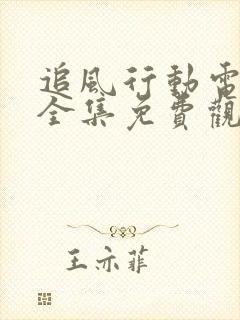 追風行動電
全集免費觀
王亦菲